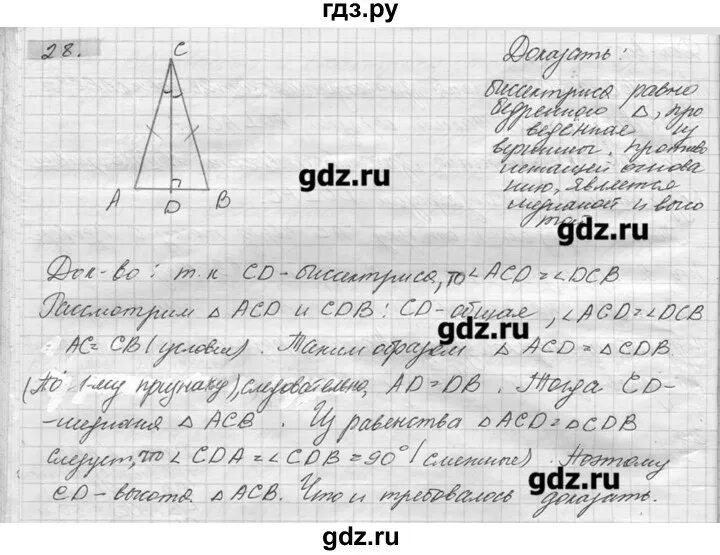 гдз.ру
28.
C
A
D
B
Доказать:
биссектриса равно
бедренного Δ, про
ведённая из
вершины, противо
лежащей основа
нию, является
медианой и высо
той
gdz.ru
gdz.ru
Док-во: т.к CD-биссектриса, то ∠ACD=∠DCB
Рассмотрим Δ ACD и CDB: CD-общая, ∠ACD=∠DCB
gdz.ru
AC=CB (условие). Таким образом Δ ACD=ΔCDB
(по 1-му признаку), следовательно, AD=DB. Тогда CD-
-медиана Δ ACB. Из равенства Δ ACD=ΔCDB
следует, что ∠CDA=∠CDB=90° (смежные). Поэтому
gdz.ru
CD-высота ΔACB. Что и требовалось доказать.
gdz.ru